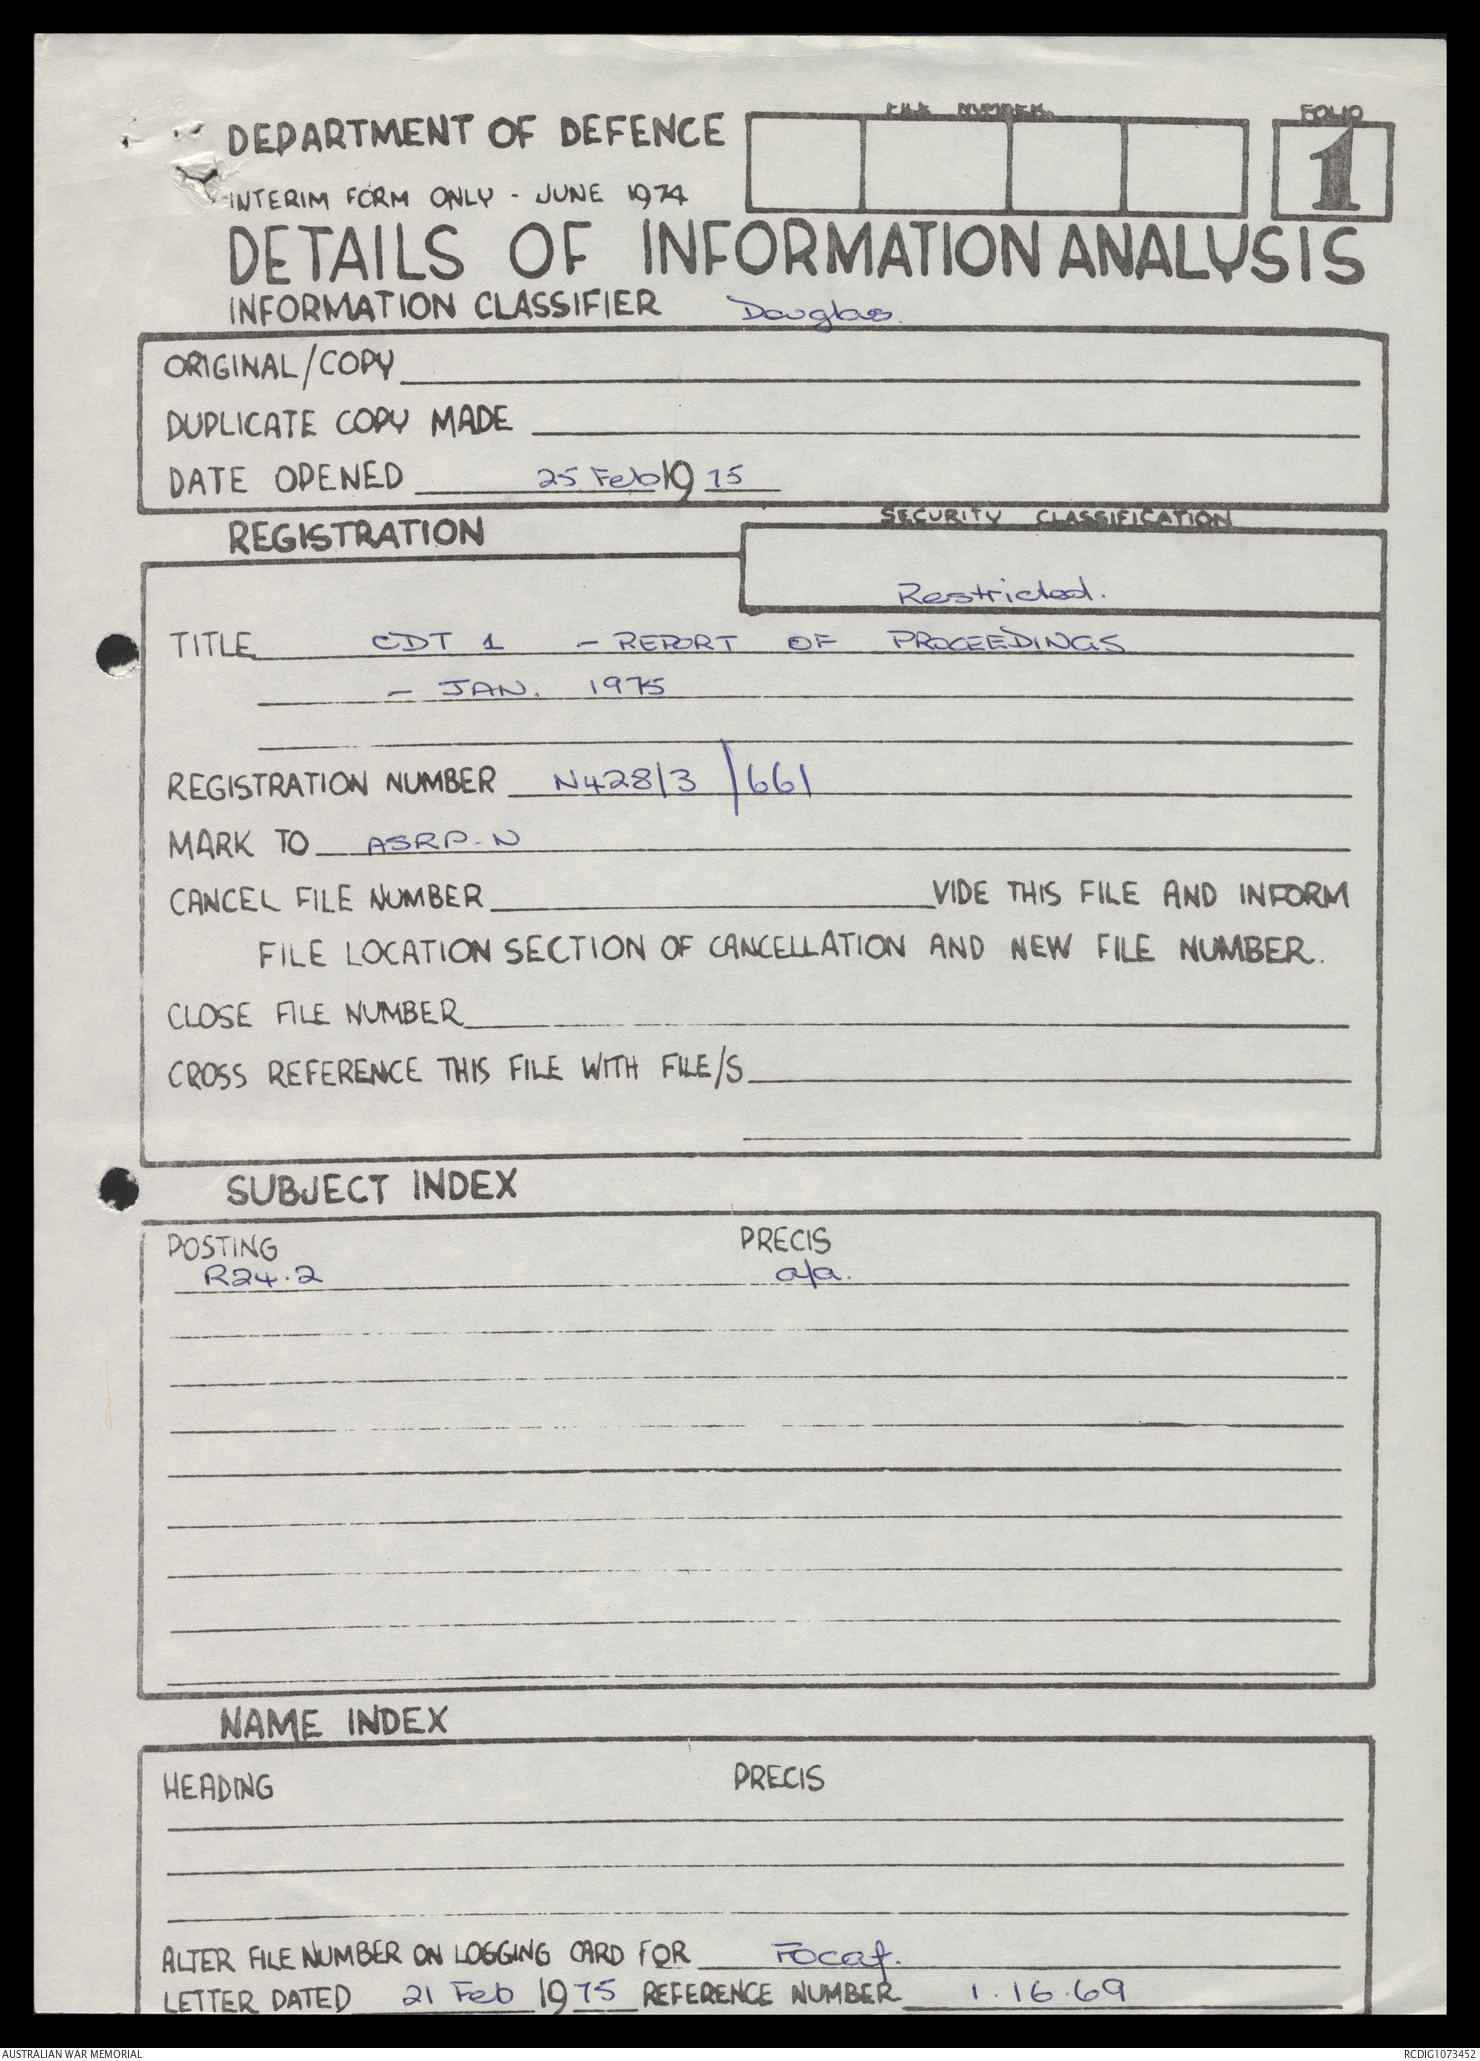 FILE NUMBER
FOLIO
DEPARTMENT OF DEFENCE
1
INTERIM FORM ONLY - JUNE 1974
DETAILS OF INFORMATION ANALYSIS
INFORMATION CLASSIFIER Douglas.
ORIGINAL/COPY
DUPLICATE COPY MADE
DATE OPENED 25 Feb 19 75
REGISTRATION
SECURITY CLASSIFICATION
Restricted.
TITLE CDT 1 - REPORT OF PROCEEDINGS
- JAN. 1975
REGISTRATION NUMBER N428/3/661
MARK TO ASRP-N
CANCEL FILE NUMBER VIDE THIS FILE AND INFORM
FILE LOCATION SECTION OF CANCELLATION AND NEW FILE NUMBER.
CLOSE FILE NUMBER
CROSS REFERENCE THIS FILE WITH FILE/S
SUBJECT INDEX
POSTING PRECIS
R24.2 a/a.
NAME INDEX
HEADING PRECIS
ALTER FILE NUMBER ON LOGGING CARD FOR Focaf.
LETTER DATED 21 Feb 1975 REFERENCE NUMBER 1.16.69
AUSTRALIAN WAR MEMORIAL RCDIG1073452